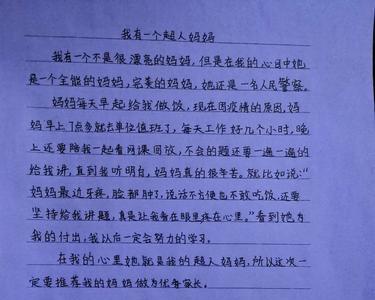 我有一个超人妈妈
我有一个不是很漂亮的妈妈,但是在我的心目中她
是一个全能的妈妈,完美的妈妈,她还是一名人民警察。
妈妈每天早起给我做饭,现在因疫情的原因,妈
妈早上7点多就去单位值班了,每天工作好几个小时,晚
上还要陪我一起看网课回放,不会的题还要一遍一遍的
给我讲,直到我听明白,妈妈真的很辛苦。就比如说:“
妈妈最近牙疼,脸都肿了,说话不方便也不敢吃饭,还要
坚持给我讲题,真是让我看在眼里疼在心里。”看到她为
我的付出,我以后一定会努力的学习。
在我的心里她就是我的超人妈妈,所以这次一
定要推荐我的妈妈做为优秀家长。